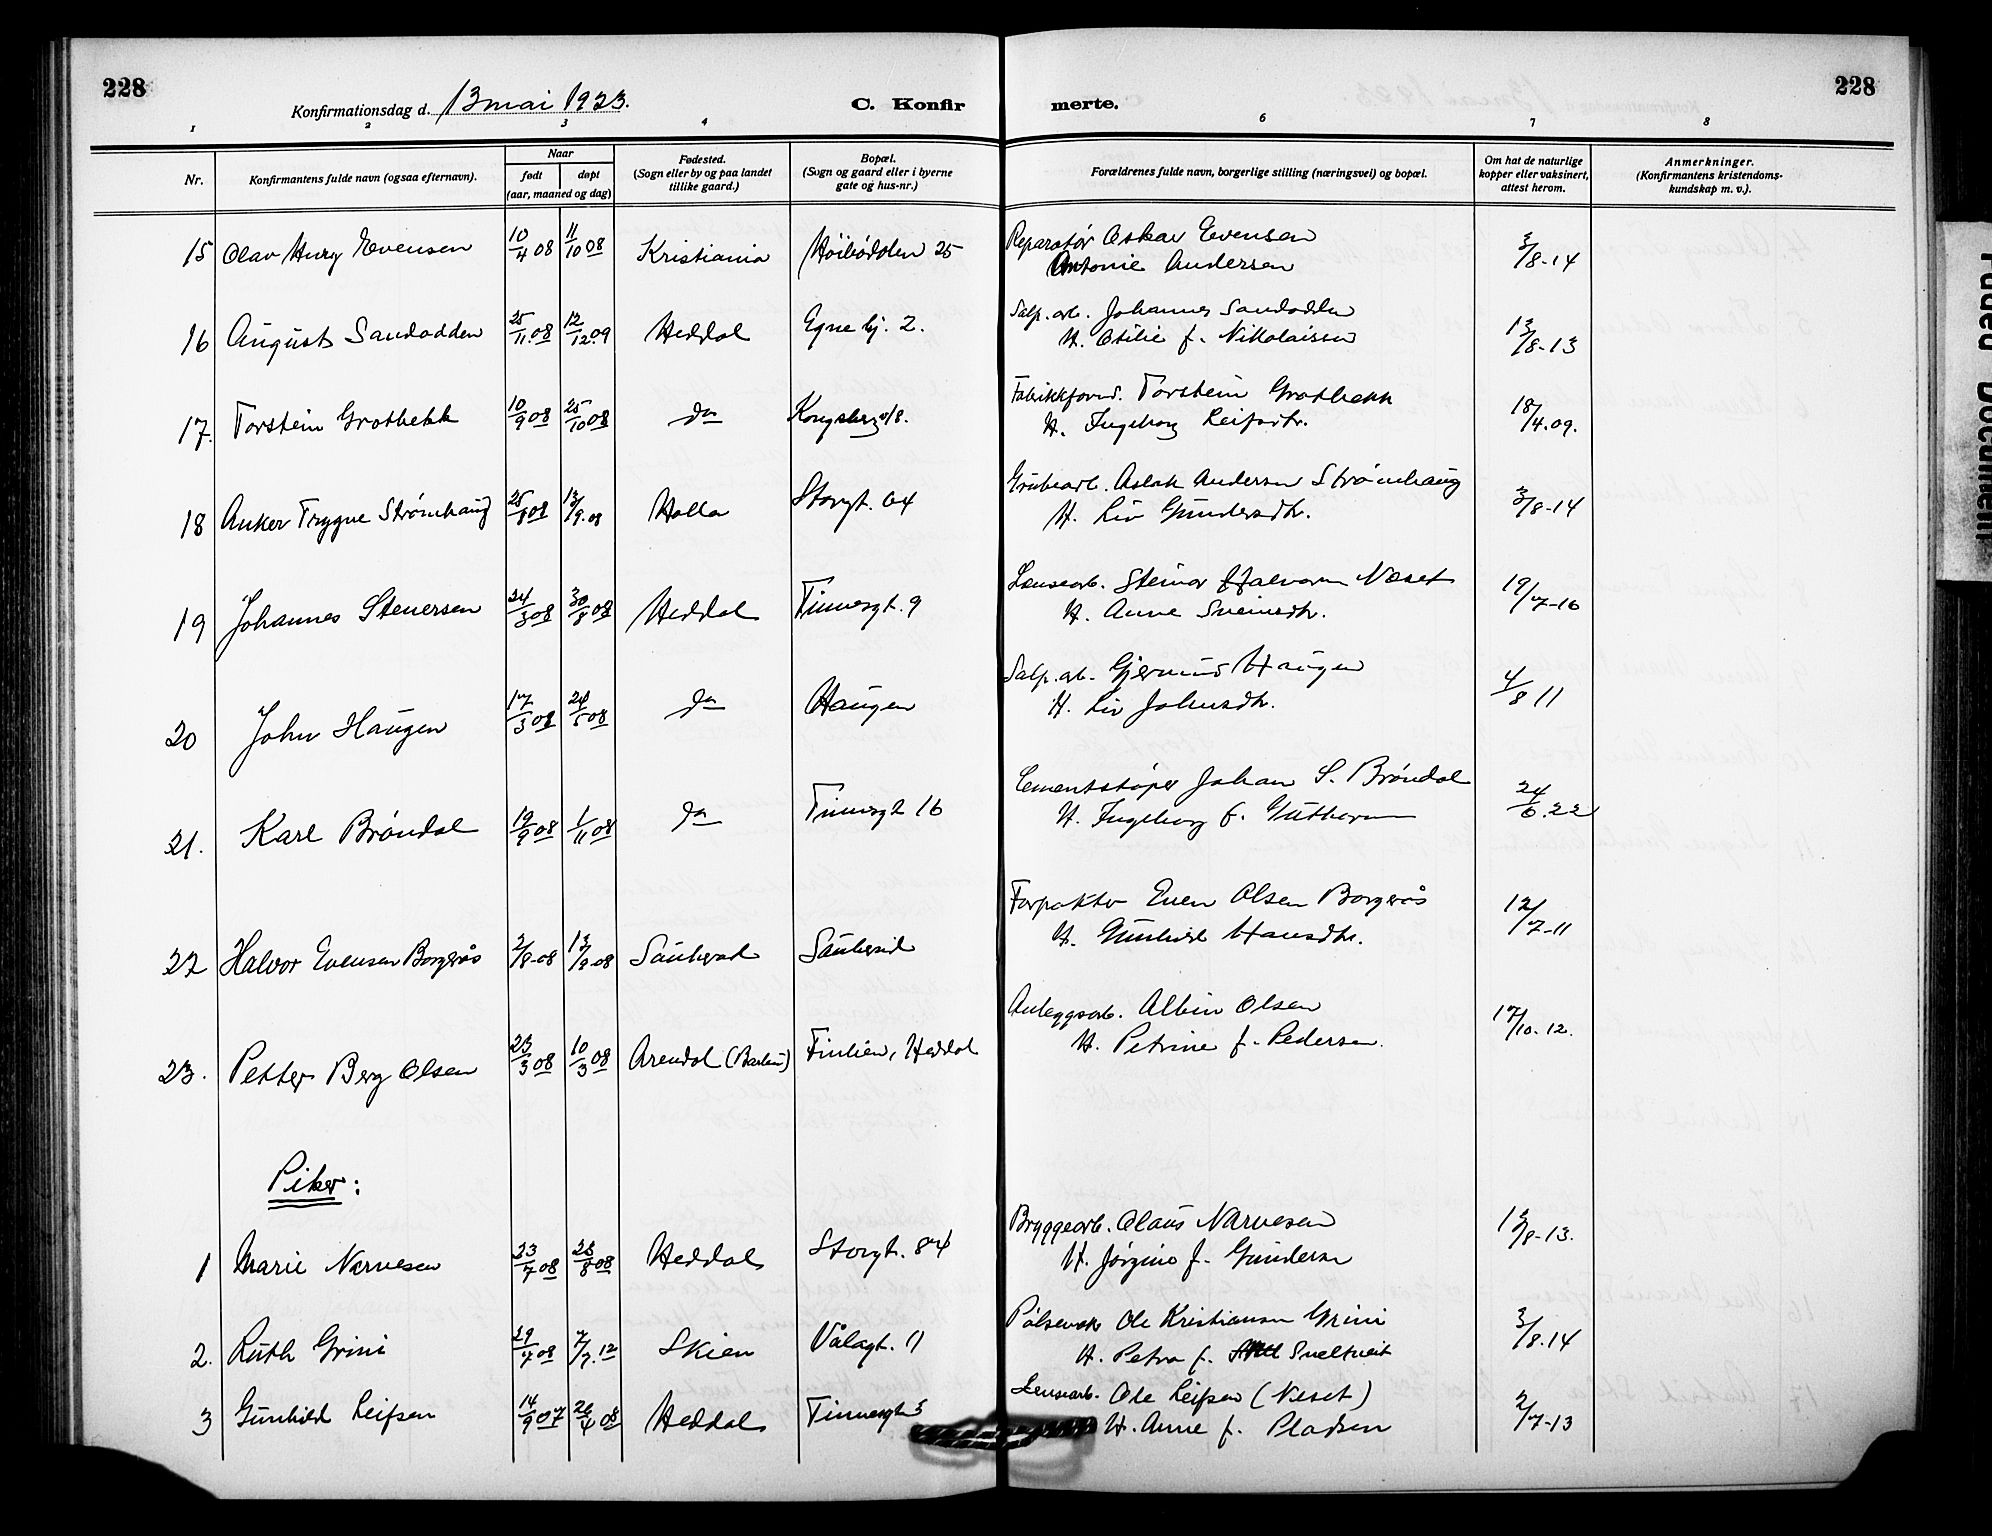 228
Konfirmationsdag d. 13 mai 1923.
C. Konfir
merte.
228
1 2 3 4 5 6 7 8
Nr.
Konfirmantens fulde navn (ogsaa efternavn).
Naar
født
døpt
(aar, maaned og dag)
Fødested.
(Sogn eller by og paa landet
tillike gaard.)
Bopæl.
(Sogn og gaard eller i byerne
gate og hus-nr.)
Forældrenes fulde navn, borgerlige stilling (næringsvei) og bopæl.
Om hat de naturlige
kopper eller vaksinert,
attest herom.
Anmerkninger.
(Konfirmantens kristendoms-
kundskap m. v.).
15 Olav Evensen 10/4 08 11/10 08 Kristiania 25 Reparatør Oskar Evensen 3/8-14
Antonie Andersen
16 August Sandodden 25/11.08 12/12.09 Heddal Egne hj. 2. Salp. arb. Johannes Sandodden 13/8-13
H. Otilie f. Nikolaisen
17. Torstein Grotbekk 10/9 08 25/10 08 do Kongsberg v/8. Fabrikkform. Torstein Grotbekk 18/4.09.
H. Ingeborg Leifsdtr.
18 Anker Trygve Strømhaug 25/8 08 13/9.08 Holla Storgt. 64 Grubearb. Aslak Andersen Strømhaug 3/8-14
H. Liv Gundersdtr.
19 Johannes Stenersen 24/3 08 30/8 08 Heddal Tinnesgt. 9 Lensearb. Steinar Halvorsen Næset 19/7-16
H. Anne Sveinsdtr.
20 John Haugen 17/3 08 24/5 08 do Haugen Salp. arb. Gjermund Haugen 4/8 11
H. Liv Johnsdtr.
21. Karl Brøndal 19/9 08 1/11 08 do Tinnesgt 16 Cementstøper Johan S. Brøndal 24/6.22
H. Ingeborg f. Guttorm
22 Halvor Evensen Borgerås 2/8-08 13/9-08 Sauherad Sauherad Forpakter Even Olsen Borgerås 12/7-11
H. Gunhild Hansdtr.
23. Petter Berg Olsen 23/3 08 10/3 08 Arendal (Barbu) Finlien, Heddal Anleggsarb. Albin Olsen 17/10-12.
H. Petrine f. Pedersen.
Piker:
1 Marie Narvesen 23/7 08 23/8 08 Heddal Storgt. 84 Bryggearb. Olaus Narvesen 13/8-13.
H. Jørgine f. Gundersen
2. Ruth Grini 29/4 08 7/7.12 Skien Vålagt. 11 Pølsemak Ole Kristiansen Grini 3/8.14
H. Petra f. Sneltveit
3 Gunhild Leifsen 14/9 07 26/4 08 Heddal Tinnesgt 3 Lensearb. Ole Leifsen (Næset) 2/7-13
H. Anne f. Pladsen